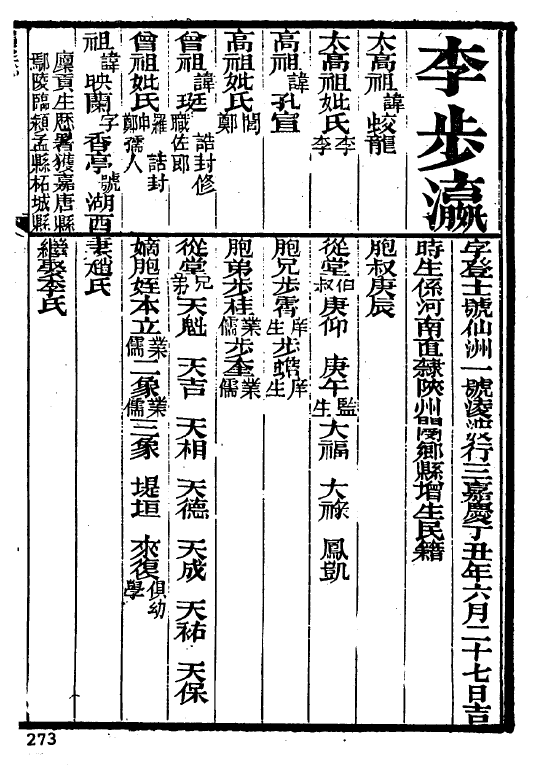 李步瀛
字登士號仙洲一號凌波行三嘉慶丁丑年六月二十七日吉
時生係河南直隸陝州閿鄉縣增生民籍
太高祖諱蛟龍
太高祖妣氏李李
高祖諱孔宣
高祖妣氏閻鄭
曾祖諱珽誥封修職佐郎
曾祖妣氏羅申鄭誥封孺人
祖諱映蘭字香亭號湖西
廩貢生歷署獲嘉唐縣
鄢陵臨潁孟縣柘城縣
胞叔庚辰
從堂伯叔庚仰 庚午監生 大福 大祿 鳳凱
胞兄步霄庠生步蟾庠生
胞弟步桂業儒步奎業儒
從堂兄弟天魁 天吉 天相 天德 天成 天祐 天保
嫡胞姪本立業儒二象業儒三象 堤垣 來復俱幼學
妻趙氏
繼娶李氏
273